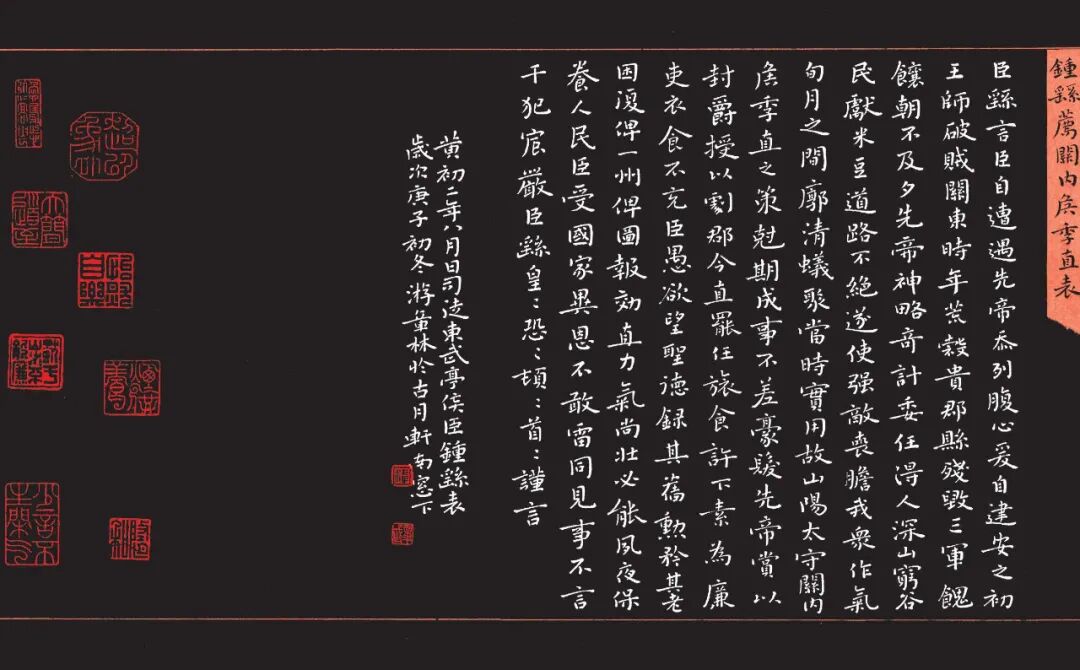 鍾繇薦關內侯季直表
臣繇言臣自遭遇先帝忝列腹心爰自建安之初
王師破賊關東時年荒穀貴郡縣殘毀三軍餽
饟朝不及夕先帝神略奇計委任得人深山窮谷
民獻米豆道路不絕遂使强敵喪膽我衆作氣
旬月之間廓清蟻聚當時實用故山陽太守關內
侯季直之策尅期成事不差豪髮先帝賞以
封爵授以劇郡今直罷任旅食許下素為廉
吏衣食不充臣愚欲望聖德録其舊勳矜其老
困復俾一州俾圖報効直力氣尚壯必能夙夜保
養人民臣受國家異恩不敢雷同見事不言
干犯宸嚴臣繇皇:恐:頓:首:謹言
黃初二年八月日司徒東武亭侯臣鍾繇表
歲次庚子初冬游彙林於古月軒南窓下